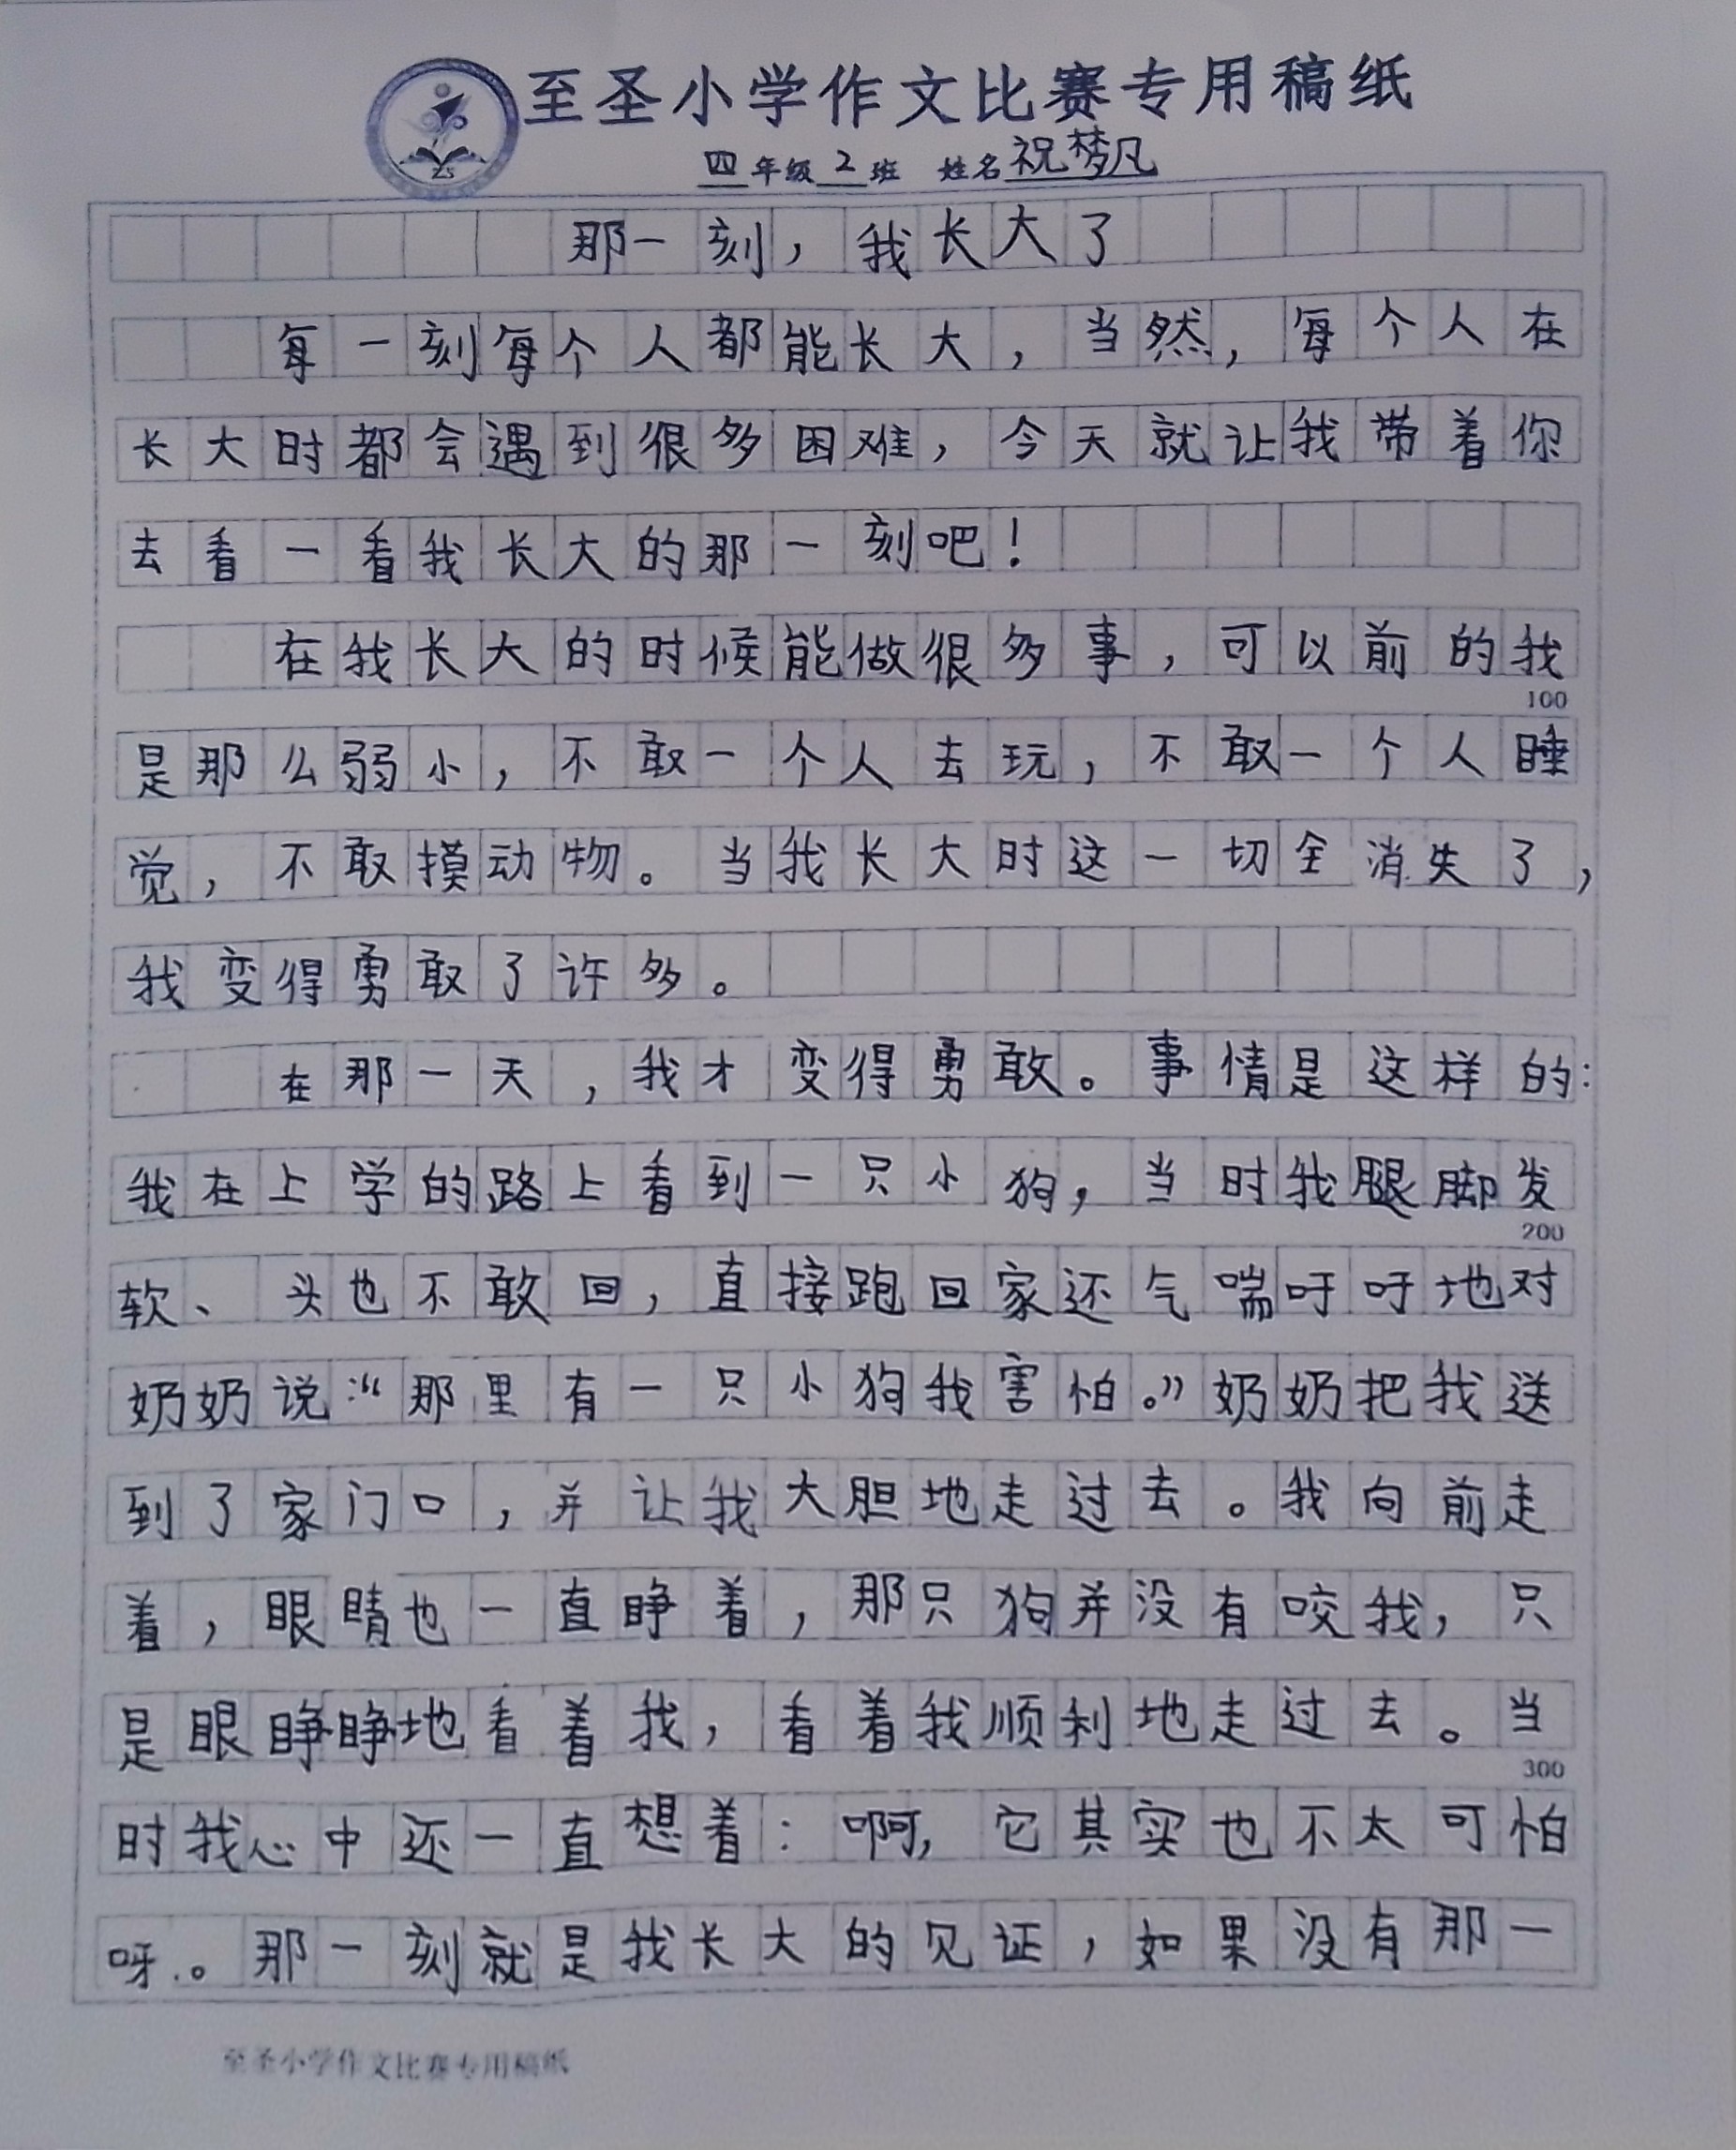 至圣小学作文比赛专用稿纸
四年级2班 姓名祝梦凡
ZS
那一刻，我长大了
每一刻每个人都能长大，当然，每个人在
长大时都会遇到很多困难，今天就让我带着你
去看一看我长大的那一刻吧！
在我长大的时候能做很多事，可以前的我
100
是那么弱小，不敢一个人去玩，不敢一个人睡
觉，不敢摸动物。当我长大时这一切全消失了，
我变得勇敢了许多。
在那一天，我才变得勇敢。事情是这样的：
我在上学的路上看到一只小狗，当时我腿脚发
200
软、头也不敢回，直接跑回家还气喘吁吁地对
奶奶说：“那里有一只小狗我害怕。”奶奶把我送
到了家门口，并让我大胆地走过去。我向前走
着，眼睛也一直睁着，那只狗并没有咬我，只
是眼睁睁地看着我，看着我顺利地走过去。当
300
时我心中还一直想着：啊，它其实也不太可怕
呀。那一刻就是我长大的见证，如果没有那一
至圣小学作文比赛专用稿纸